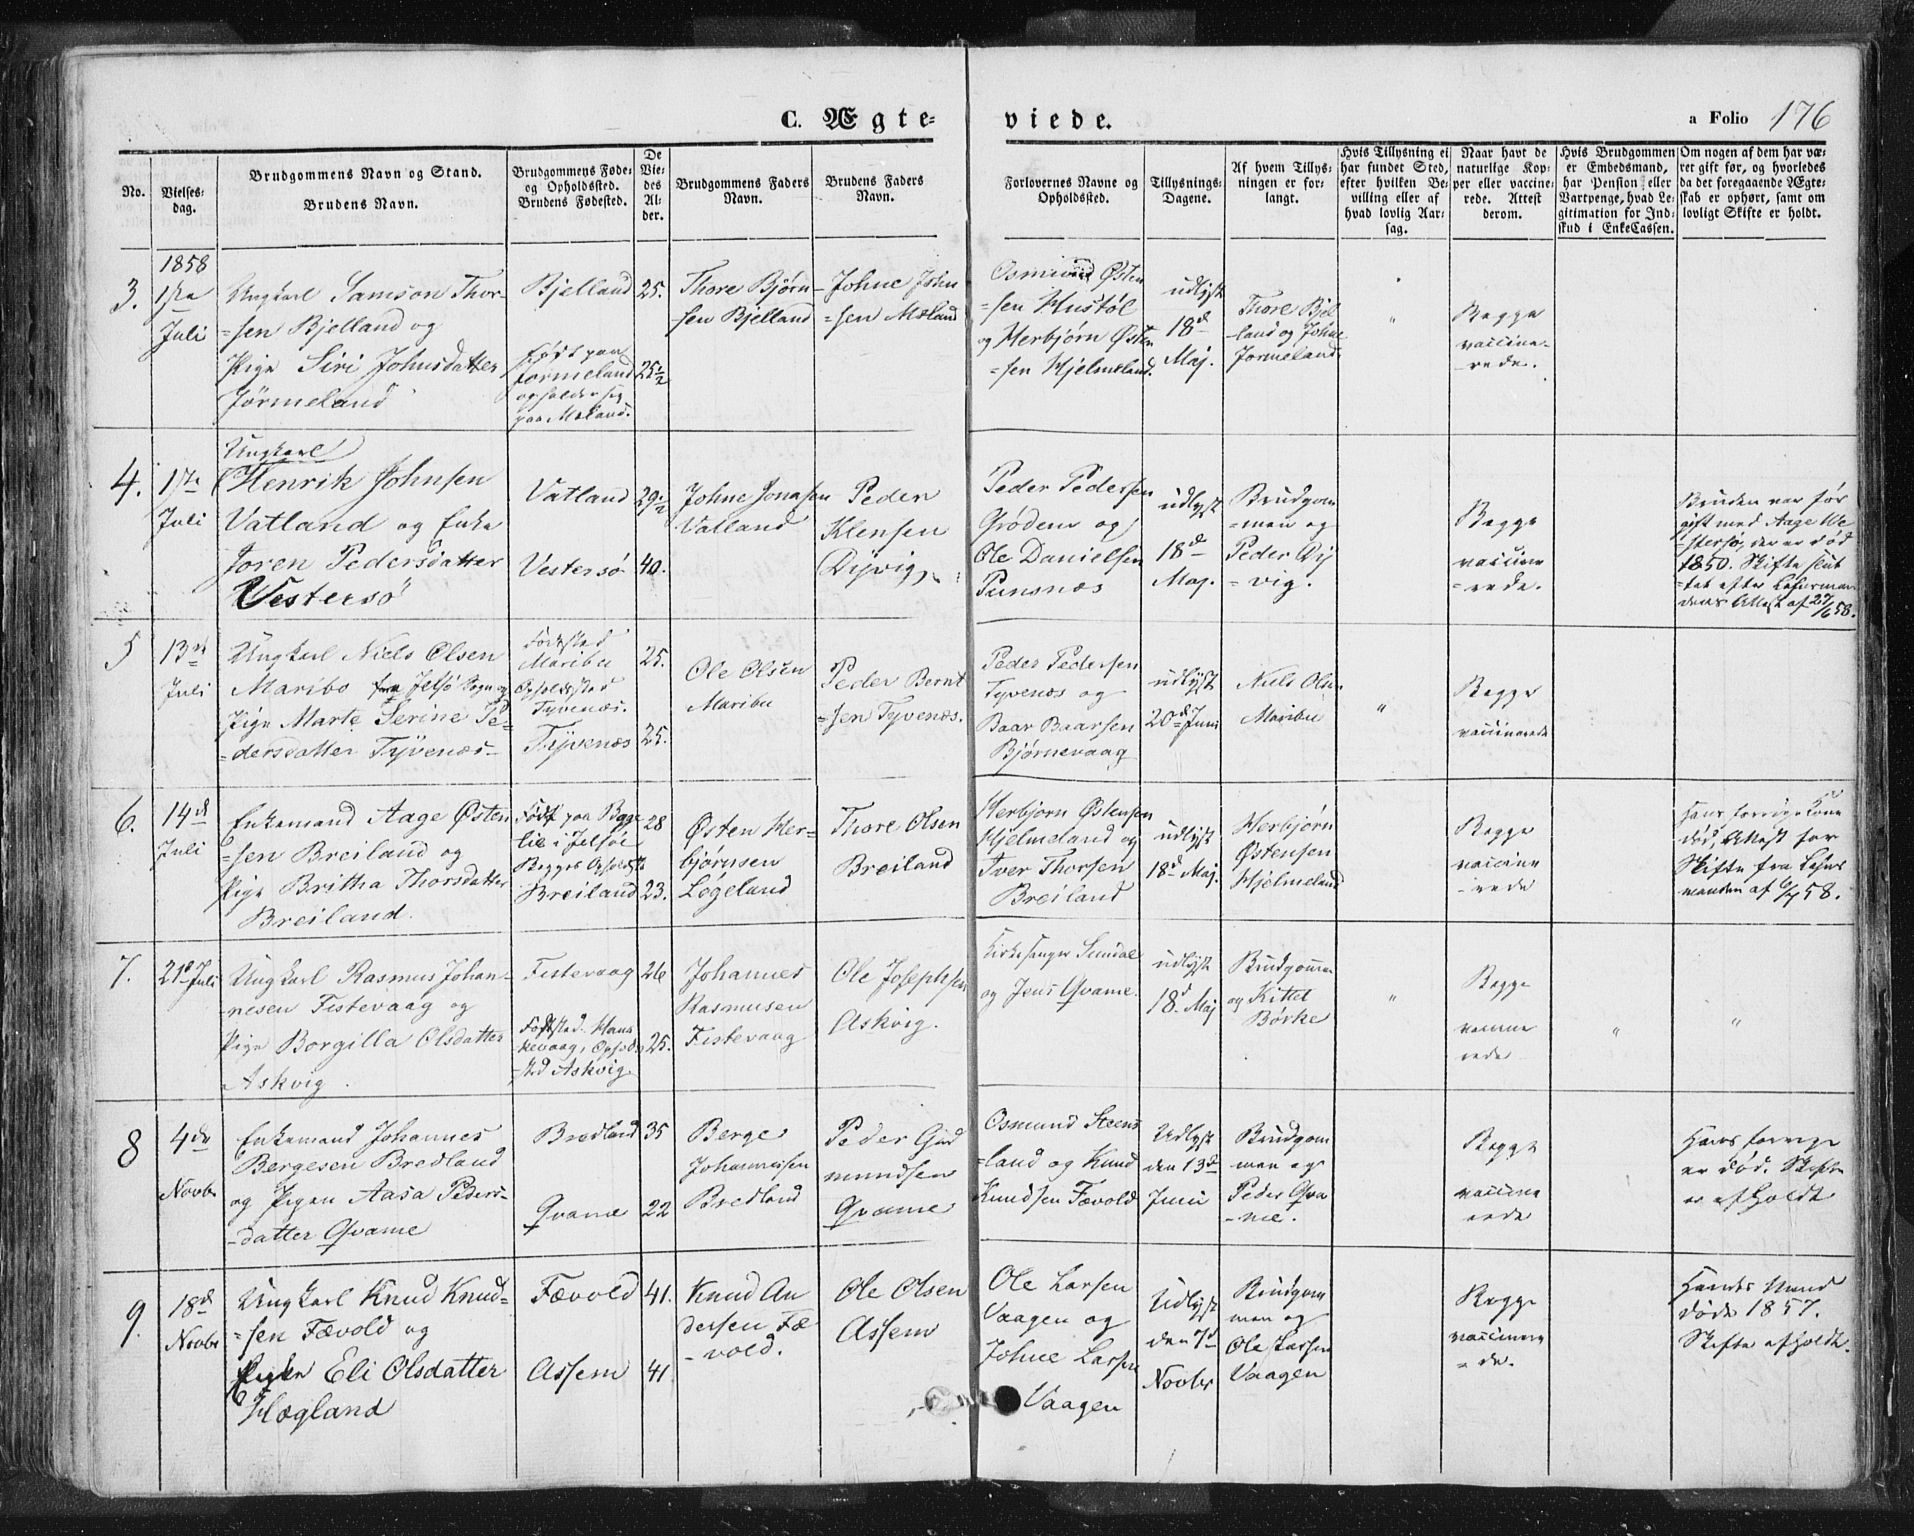 C. Ægte-
viede.
a Folio 176
No.
Vielses-
dag.
Brudgommens Navn og Stand.
Brudens Navn.
Brudgommens Føde-
og Opholdssted.
Brudens Fødested.
De
Vie-
des
Al-
der.
Brudgommens Faders
Navn.
Brudens Faders
Navn.
Forlovernes Navne og
Opholdssted.
Tillysnings-
Dagene.
Af hvem Tillys-
ningen er for-
langt.
Hvis Tillysning ei
har fundet Sted,
efter hvilken Be-
villing eller af
hvad lovlig Aar-
sag.
Naar havt de
naturlige Kop-
per eller vaccine-
rede. Attest
derom.
Hvis Brudgommen
er Embedsmand,
har Pension eller
Vartpenge, hvad Le-
gitimation for Ind-
skud i EnkeCassen.
Om nogen af dem har væ-
ret gift før, og hvorledes
da det foregaaende Ægte-
skab er ophørt, samt om
lovligt Skifte er holdt.
3.
1858
1ste
Juli
Ungkarl Samson Thor-
=sen Bjelland og
Pige Siri Johnsdatter
Jørmeland
Bjelland
Født paa
Jørmeland
opholder sig
paa Mæland.
25.
25 1/2
Thore Bjørn-
sen Bjelland
Johne John
=sen Mæland
Osmund Østen
=sen Hustøl
og Herbjørn Østen
=sen Hjelmeland.
udlyst
18d
Maj.
Thore Bjel
land og Johne
Jormeland.
"
"
Begge
vaccine-
rede.
4.
1ste
Juli
Ungkarl
Henrik Johnsen
Vatland og Enke
Joren Pedersdatter
Vestersø
Vatland
Vestersø
29 1/2
40.
Johne Jonasen
Vatland
Peder
Klensen
Dyvig
Peder Pedersen
Grødem og
Ole Danielsen
Punsnæs
udlyst
18d
Maj.
Brudgom
=men og
Peder Dy
=vig.
Begge
vaccine
=rede.
Bruden var før
gift med Aage Ve
=stersø, der er død
1850. Skifte slut
=tet efter Lehnsman
dens Attest af 27/6 58.
5
13de
Juli
Ungkarl Niels Olsen
Maribo fra Jelsø Sogn og
Pige Marte Serine Pe-
=dersdatter Tyvenæs-
Fødested
Maribu
Opholdssted
Tyvenæs.
Tyvenæs
25.
25.
Ole Olsen
Maribu
Peder Bernt
=sen Tyvenæs.
Peder Pedersen
Tyvenæs og
Baar Baarsen
Bjørnevaag
udlyst
20d Juni
Niels Olsen
Maribu
"
Begge
vaccinerede
6.
14d
Juli
Enkemand Aage Østen
=sen Breiland og
Pige Britha Thorsdatter
Breiland.
Født paa Bage
lie i Jelsøe
Begges Opholdsst
Breiland
28
23.
Østen Her-
bjørnsen
Løgeland
Thore Olsen
Breiland
Herbjorn Østensen
Hjelmeland og
Iver Thorsen
Breiland
udlyst
18d Maj.
Herbjørn
Østensen
Hjelmeland
Begge
vaccine
-rede
Hans forrige Kone
død, Attest for
Skifte fra Lehns
manden af 6/7 58.
7.
21d Juli
Ungkarl Rasmus Johan-
-nesen Fistevaag og
Pige Borgilla Olsdatter
Askvig.
Fistevaag
Fødested. Hans
kevaag, Opholds
-sted Askvig
26
25.
Johannes
Rasmusen
Fistevaag
Ole Josephsen
Askvig.
Kirkesanger Sundal
og Jens Qvame.
udlyst
18d Maj
Brudgommen
og Kittel
Børke
"
Begge
vaccine
rede
"
"
8
4de
Novbr
Enkemand Johannes
Bergesen Bredland
og Pigen Aasa Peders-
-datter Qvame
Bredland
Qvame
35
22
Berge
Johannesen
Bredland
Peder Gud
mundsen
Qvame
Osmund Steens
=land og Knud
Knudsen Fævold
Udlyst
den 13d
Juni
Brudgom
men og
Peder Qva
-me.
Begge
vaccine
rede
Hans forrige
er død. Skifte
er afholdt
9.
18d
Novbr
Ungkarl Knud Knud-
=sen Fævold og
Eli Olsdatter
Hægland
Fævold
Assem
41.
41
Knud An
dersen Fæ
-vold.
Ole Olsen
Assem
Ole Larsen
Vaagen og
Johne Larsen
Vaagen
Udlyst
den 7d
Novbr
Brudgom
men og
Ole Larsen
Vaagen
Begge
vaccinere
=de.
Hendes Mand
døde 1857.
Skifte afholdt.